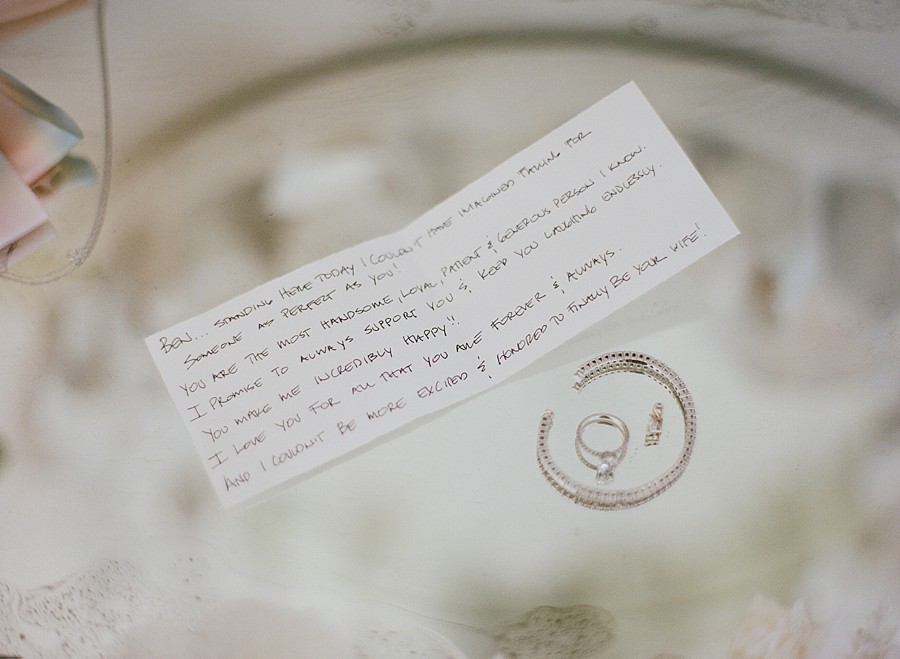 BEN... STANDING HERE TODAY I COULDN'T HAVE IMAGINED FALLING FOR
SOMEONE AS PERFECT AS YOU!
YOU ARE THE MOST HANDSOME, LOYAL, PATIENT & GENEROUS PERSON I KNOW.
I PROMISE TO ALWAYS SUPPORT YOU & KEEP YOU LAUGHING ENDLESSLY.
YOU MAKE ME INCREDIBLY HAPPY!!
I LOVE YOU FOR ALL THAT YOU ARE FOREVER & ALWAYS.
AND I COULDN'T BE MORE EXCITED & HONORED TO FINALLY BE YOUR WIFE!